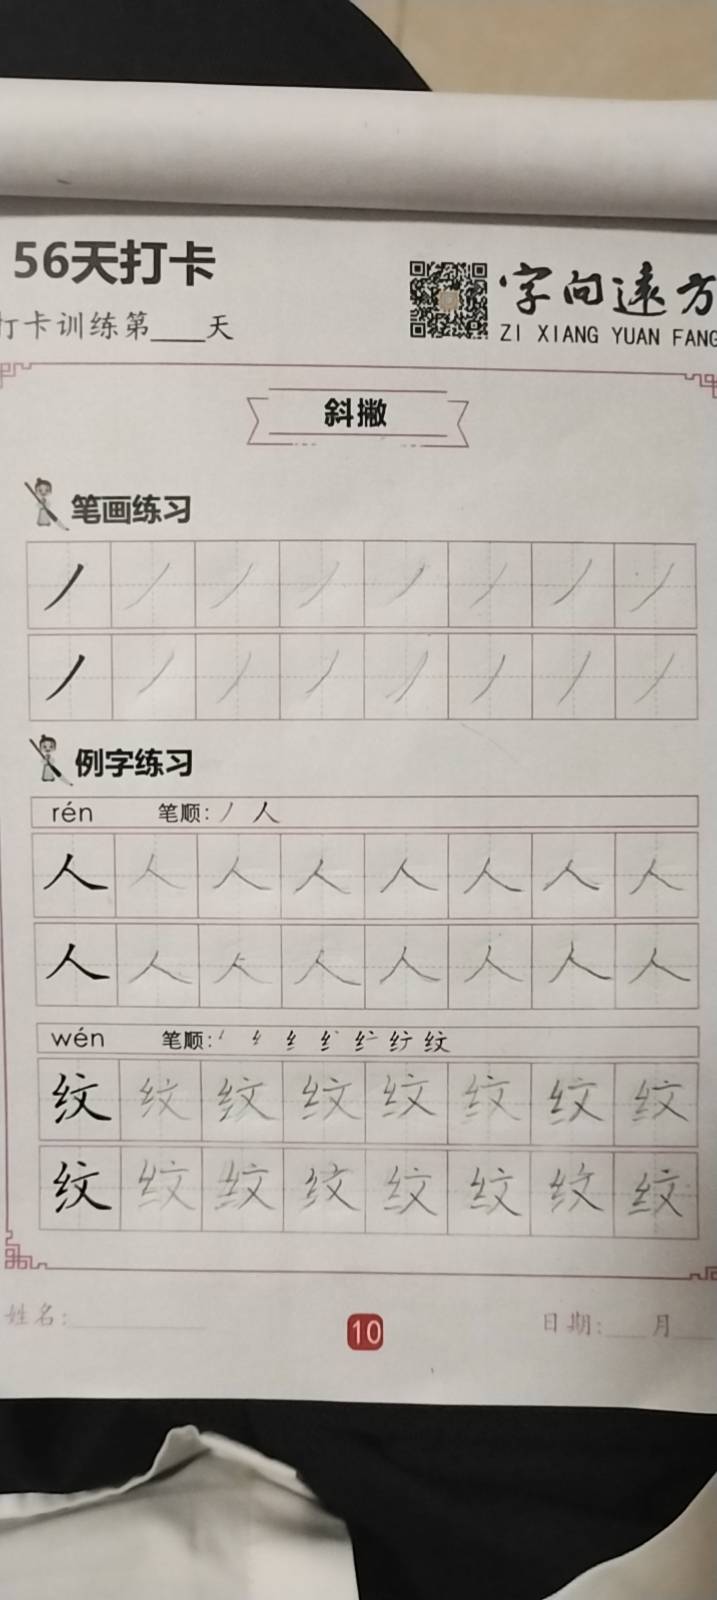 56天打卡
字向遠方
打卡训练第____天
ZI XIANG YUAN FANG
斜撇
笔画练习
丿丿丿丿丿丿丿丿
丿丿丿丿丿丿丿丿
例字练习
rén 笔顺：丿 人
人人人人人人人人
人人人人人人人人
wén 笔顺：
纹纹纹纹纹纹纹纹
纹纹纹纹纹纹纹纹
姓名：
10
日期：____月